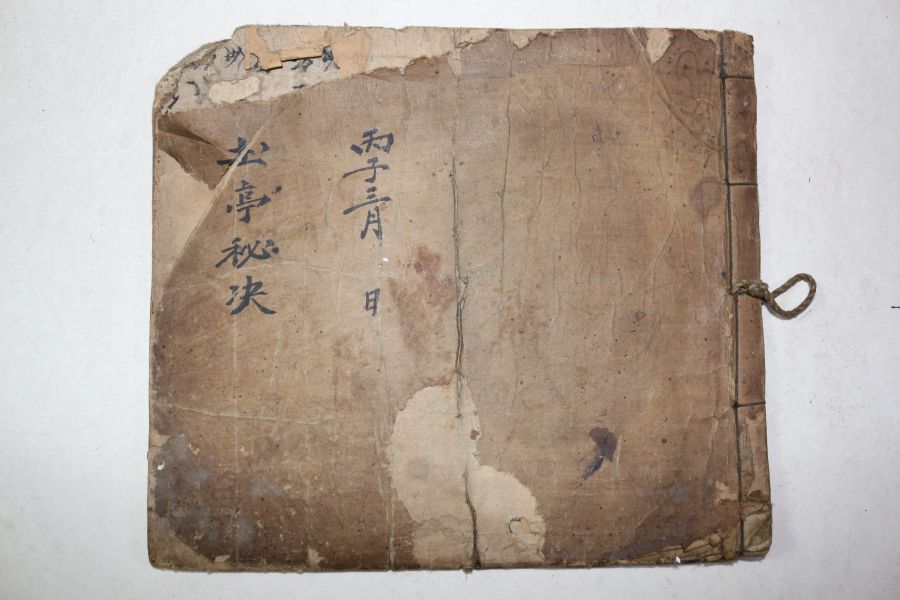 丙子三月 日
松亭秘决